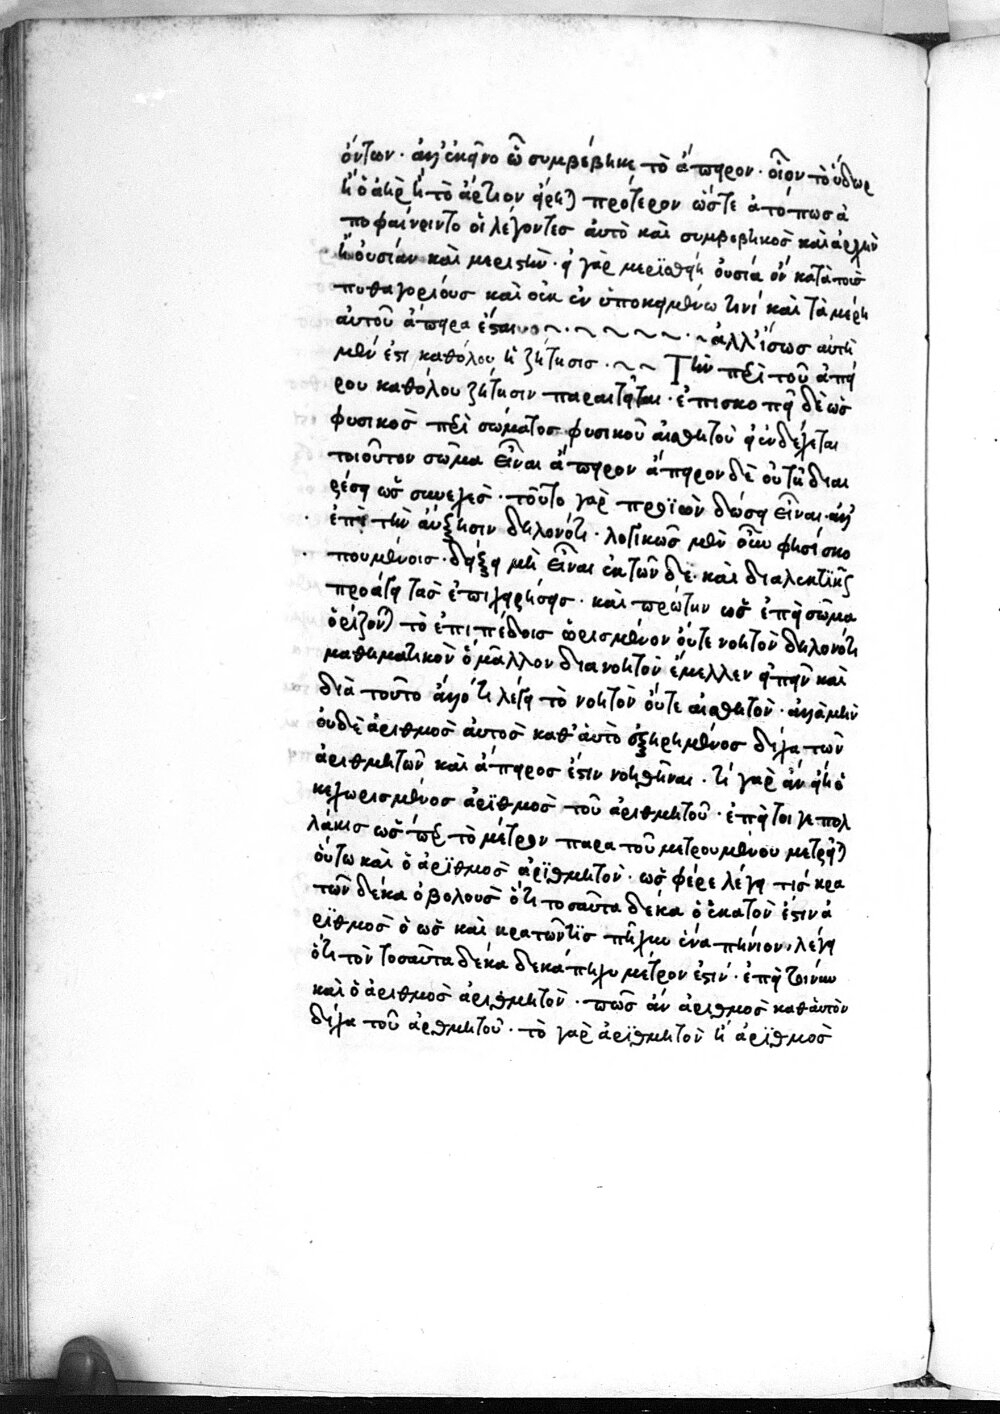 όντων· ἀλλ' ἐκεῖνο ὧ συμβέβηκε τὸ ἄπειρον· οἷον τὸ ὕδωρ
ἢ ὁ ἀὴρ ἢ τὸ ἄρτιον εἴρηται πρότερον ὥστε ἀτόπως ἀ
ποφαίνοιντο οἱ λέγοντες ἀυτὸ καὶ συμβεβηκὸς καὶ ἀρχὴν
ἢ ὀυσίαν καὶ μεριστὴν· εἰ γὰρ μερϊσθείη ὀυσία ὂν κατὰ τοὺς
πυθαγορείους καὶ οὐκ ἐν ὑποκειμένω τινί καὶ τὰ μέρη
αὐτοῦ ἄπειρα ἔσται ~ ~ ~ ~ ~ ~ ἀλλ' ἴσως αὐτη
μὲν ἐστι καθόλου ἡ ζήτησις· ~ ~ Τὴν περὶ τοῦ ἀπεί
ρου καθόλου ζήτησιν παραιτεῖται· ἐπισκοπεῖ δὲ ὡς
φυσικὸς περὶ σώματος φυσικοῦ αἰσθητοῦ εἰ ἐνδέχεται
τοιοῦτον σῶμα εἶναι ἄπειρον ἄπειρον δὲ οὐ τῆ διαι
ρέσει ὡς συνεχὲς· τοῦτο γὰρ προϊὼν δώσει εἶναι· ἀλλ'
ἐπὶ τὴν ἀύξησιν δηλονότι· λογικῶς μὲν οὖν φησί σκο
πουμένοις· δόξει μὴ εἶναι ἐκ τῶν δε· καὶ διαλεκτικῆς
προάγει τὰς ἐπιχειρήσεις· καὶ πρώτην ὡς ἐπεὶ σῶμα
ὁρίζονται τὸ ἐπιπέδοις ὡρισμένον ὄυτε νοητὸν δηλονότι
μαθηματικὸν ὃ μᾶλλον διανοητὸν ἔμελλεν εἰπεῖν καὶ
διὰ τοῦτο ἀλλ' ὅτι λέγει τὸ νοητὸν ὄυτε αἰσθητὸν· ἀλλὰ μὴν
ὀυδὲ ἀριθμὸς ἀυτὸς καθ' ἁυτὸ ἐξηρημένος δίχα τῶν
ἀριθμητῶν καὶ ἄπειρος ἔστιν νοηθῆναι· τί γὰρ ἂν εἴη ὁ
κεχωρισμένος ἀρϊθμὸς τοῦ ἀριθμητοῦ· ἐπεί τοι γε πολ
λάκις ὥσπερ τὸ μέτρον παρα τοῦ μετρουμένου μετρεῖται
ὁύτω καὶ ὁ ἀρϊθμὸς ἀρϊθμητὸν· ὡς φέρε λέγει τις κρα
τῶν δέκα ὀβολοὺς ὅτι τοσαῦτα δέκα ὁ ἑκατὸν ἐστιν ἀ
ρϊθμὸς ὁ ὡς καὶ κρατῶν τις πῆχυν ἕνα πηνίον, λέγει
ὅτι τὸν τοσαῦτα δέκα δεκάπηχυ μέτρον ἐστιν· ἐπεὶ τοίνυν
καὶ ὁ ἀριθμὸς ἀριθμητὸν· πῶς ἂν ἀριθμὸς καθ' ἁυτὸν
δίχα τοῦ ἀριθμητοῦ· τὸ γὰρ ἀρϊθμητὸν ἢ ἀρϊθμὸς